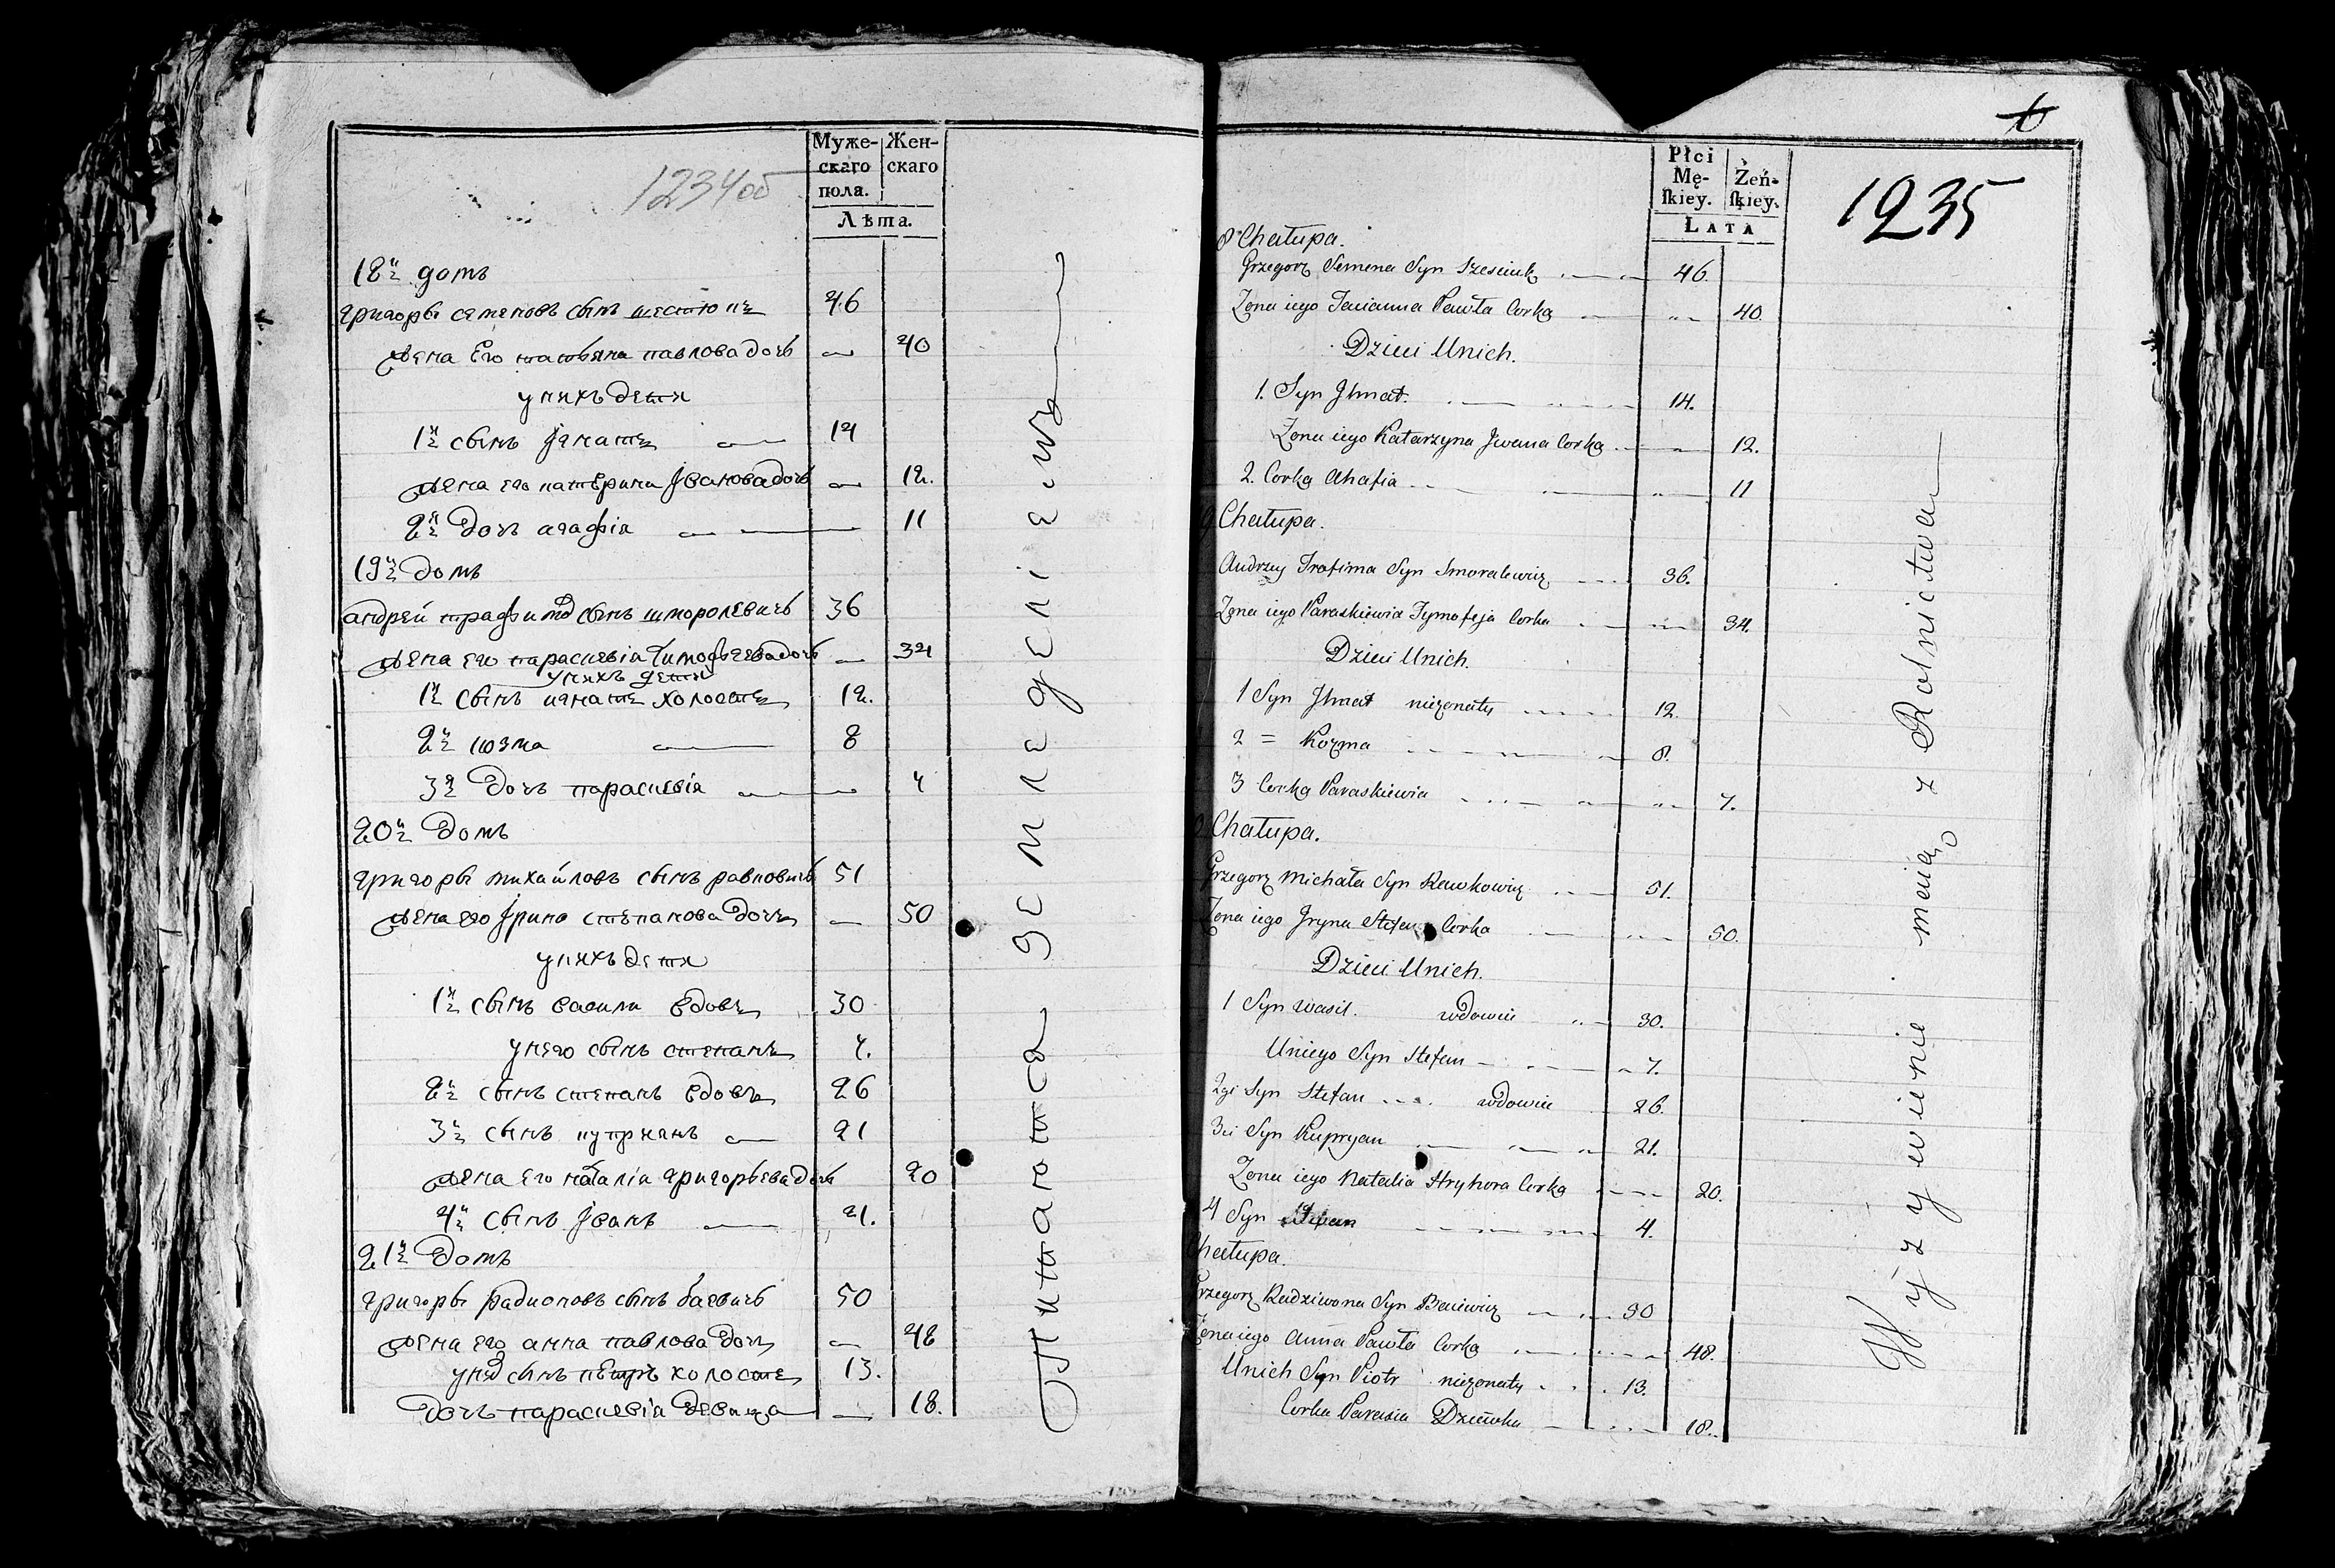 1234об
Муже-
скаго
пола.
Жен-
скаго
Лѣта.
18й домъ
григорѣ семеновъ сынъ шестюкъ 46
жена Его татьяна павлова дочь 40
у нихъ дети
1й сынъ Jгнатъ 14
жена его катерина Jванова дочь 12.
2я дочь агафія 11
19й домъ
андрей трафимов сынъ шморолевичъ 36
жена его параскевія тимофѣева дочь 34
у нихъ дети
1й сынъ игнатъ холостъ 12.
2й козма 8
3я дочь параскевія 4
20й домъ
григорѣ михайловъ сынъ равковичъ 51
жена его Jрина степанова дочь 50
у нихъ дети
1й сынъ васили вдовъ 30
у него сынъ степанъ 4.
2й сынъ степанъ вдовъ 26
3й сынъ куприянъ 21
жена его наталія григорьева дочь 20
4й сынъ Jванъ 4.
21й домъ
григорѣ радионовъ сынъ баевичъ 50
жена его анна павлова дочь 48
у них сынъ петръ холостъ 13.
дочь параскевія девица 18.
Питаются земледелiемъ
1235
Płci
Mę-
ſkiey.
Żeń-
ſkiey.
LATA
8 Chałupa.
Grzegorz Semena Syn Szesciuk 46.
Zona iego Tacianna Pawła Corka 40.
Dzieci Unich.
1. Syn Jhnat. 14.
Zona iego Katarzyna Jwana Corka 12.
2. Corka Ahafia 11
9 Chałupa.
Andrzey Trofima Syn Smoralewicz 36.
Zona iego Paraskiewia Tymofeja Corka 34.
Dzieci Unich.
1 Syn Jhnat niezonaty 12.
2 = Kozma 8.
3 Corka Paraskiewia 4.
Chałupa.
Grzegorz Michała Syn Rawkowicz 51.
Zona iego Jryna Stefana Corka 50.
Dzieci Unich.
1 Syn Wasil. wdowiec 30.
Uniego Syn Stefan 4.
2gi Syn Stefan wdowiec 26.
3ci Syn Kupryan 21.
Zona iego Natalia Hryhora Corka 20.
4 Syn 4.
Chałupa.
Grzegorz Radziwona Syn Baiewicz 50
Zona iego Anna Pawła Corka 48.
Unich Syn Piotr niezonaty 13.
Corka Parasia Dziewka 18.
Wyzywienie maią z Rolnictwa